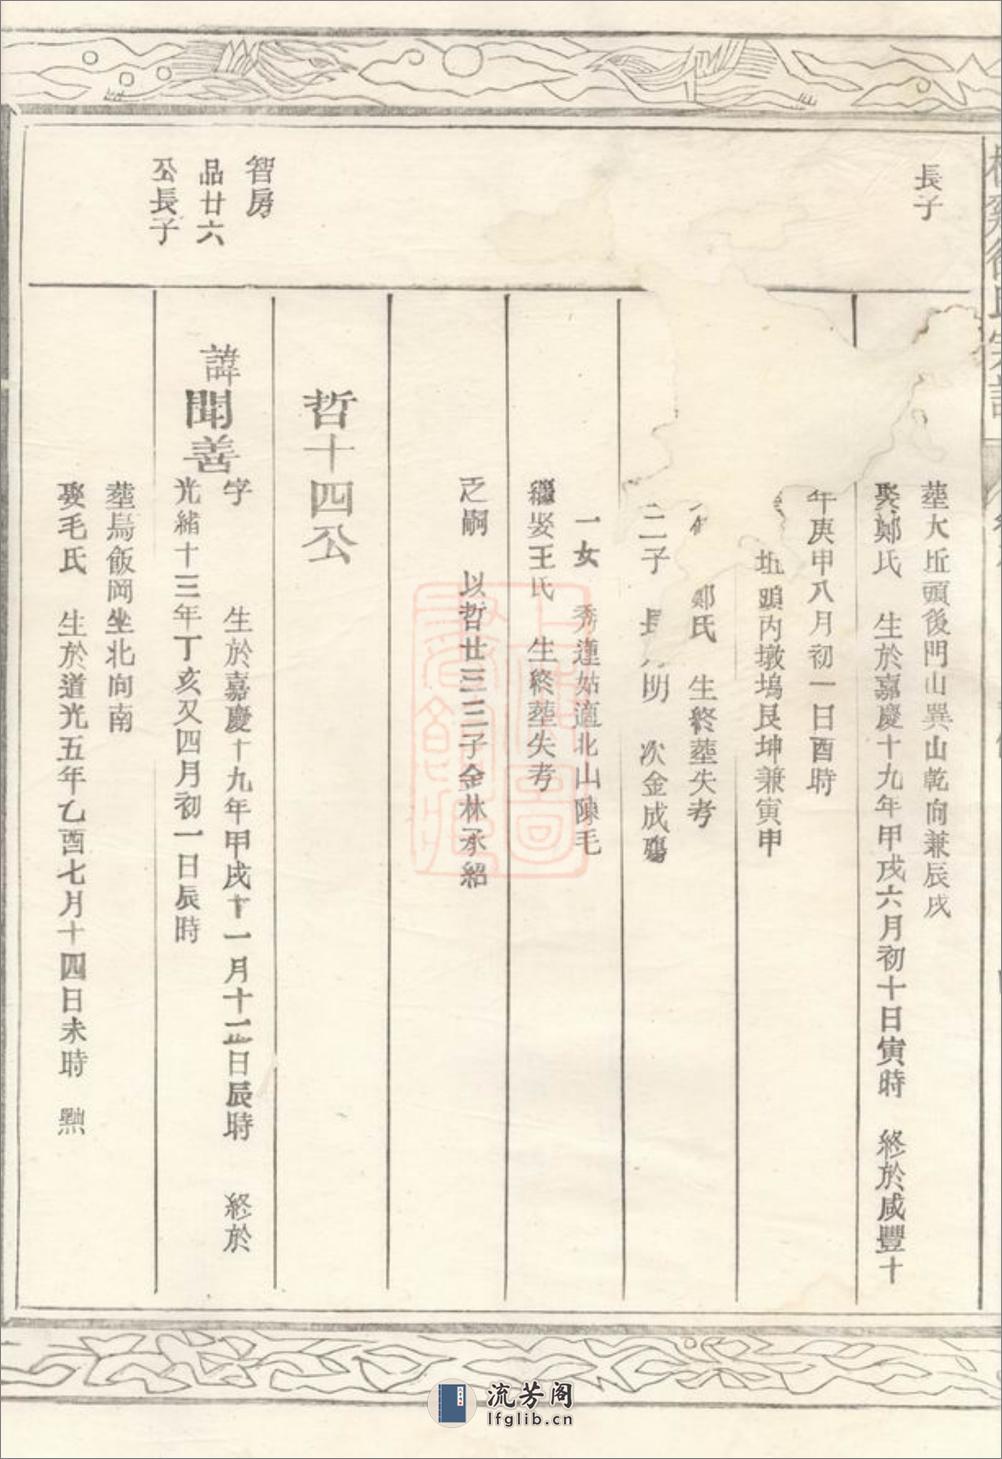 長子
葬大坵頭後門山巽山乾向兼辰戌
娶鄭氏 生於嘉慶十九年甲戌六月初十日寅時 終於咸豐十
年庚申八月初一日酉時
坵頭內墩塢艮坤兼寅申
鄭氏 生終葬失考
二子 長 明 次金成殤
一女 秀蓮姑適北山陳毛
繼娶王氏 生終葬失考
之嗣 以哲廿三三子金林承紹
哲十四公
智房
品廿六
公長子
諱聞善
字 生於嘉慶十九年甲戌十一月十二日辰時 終於
光緒十三年丁亥又四月初一日辰時
葬烏飯岡坐北向南
娶毛氏 生於道光五年乙酉七月十四日未時 點
流芳阁
lfglib.cn